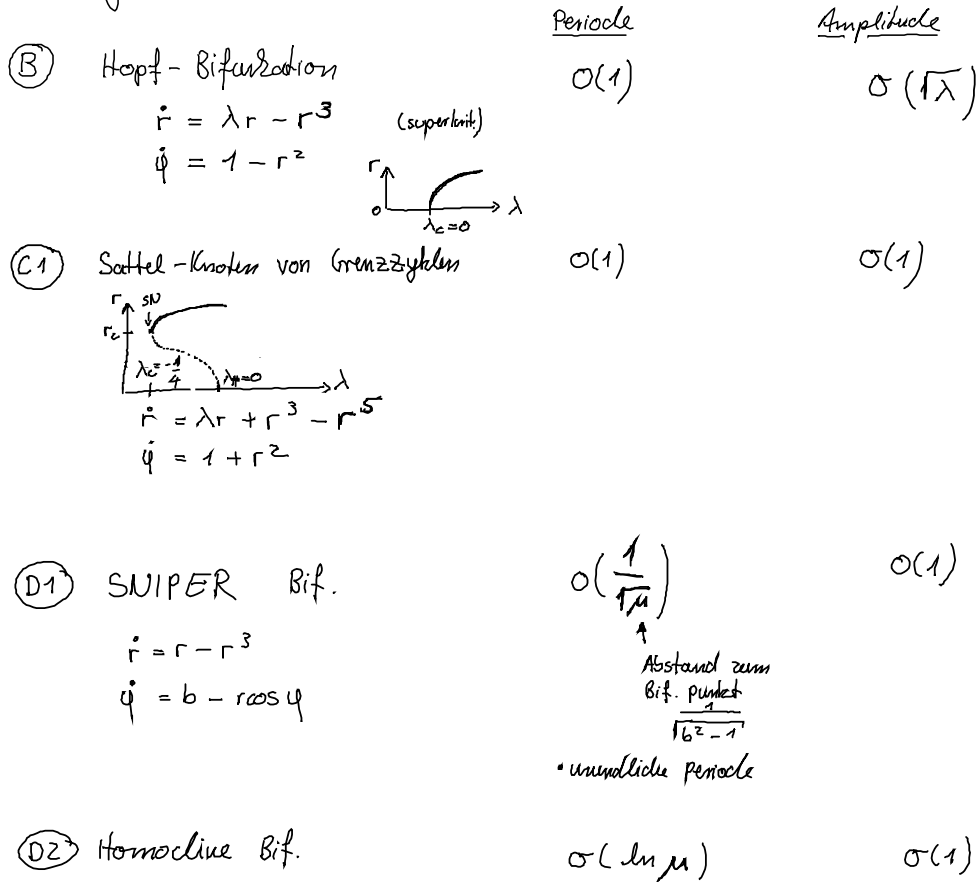 Periode Amplitude
(B) Hopf-Bifurkation O(1) O(√λ)
ṙ = λr − r³ (superkrit.)
φ̇ = 1 − r²
r
0 λ
λc=0
(C1) Sattel-Knoten von Grenzzyklen O(1) O(1)
r SN
rc
λc=-1/4 λH=0 λ
ṙ = λr + r³ − r⁵
φ̇ = 1 + r²
(D1) SNIPER Bif. O(1/√μ) O(1)
ṙ = r − r³
φ̇ = b − r cos φ
Abstand zum
Bif. punkt
1/√(b²−1)
• unendliche Periode
(D2) Homokline Bif. O(ln μ) O(1)